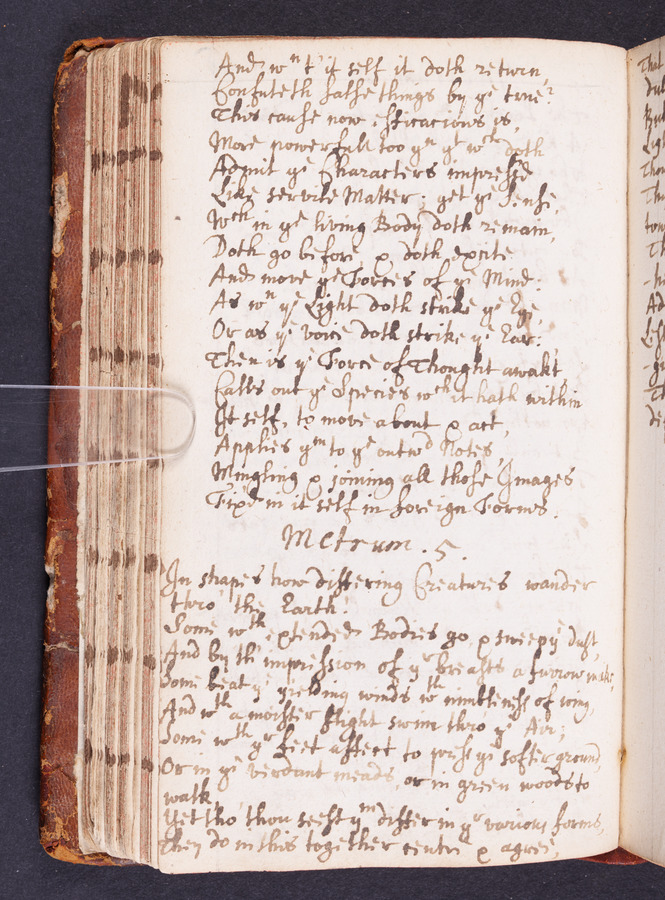 And wn t' it self it doth return,
Confuteth false things by ye true?
This cause now efficacious is,
More powerfull too yn yt wch doth
Admit ye Characters impress'd
Like servile Matter; yet ye Sense,
Wch in ye living Body doth remain,
Doth go before, & doth excite
And move ye Forces of ye Mind.
As wn ye Light doth strike ye Eye,
Or as ye voice doth strike ye Ear:
Then is ye Force of Thought awakt
Calls out ye Species wch it hath within
It self, to move about & act,
Applies ym to ye outwd Notes,
Mingling & joining all those Images
Fix'd in it self in foreign Forms.
Metrum . 5 .
In shapes how differing Creatures wander
thro' the Earth!
Some wth extended Bodies go, & sweep ye dust,
And by th' impression of yr breasts a furrow make,
Some beat ye yielding winds wth nimbleness of wing,
And wth a moister flight swim thro' ye Air;
Some wth yr feet affect to press ye softer ground,
Or in ye verdant meads, or in green woods to
walk.
Yet tho' thou seest ym differ in yr various forms,
They do in this together centre & agree,